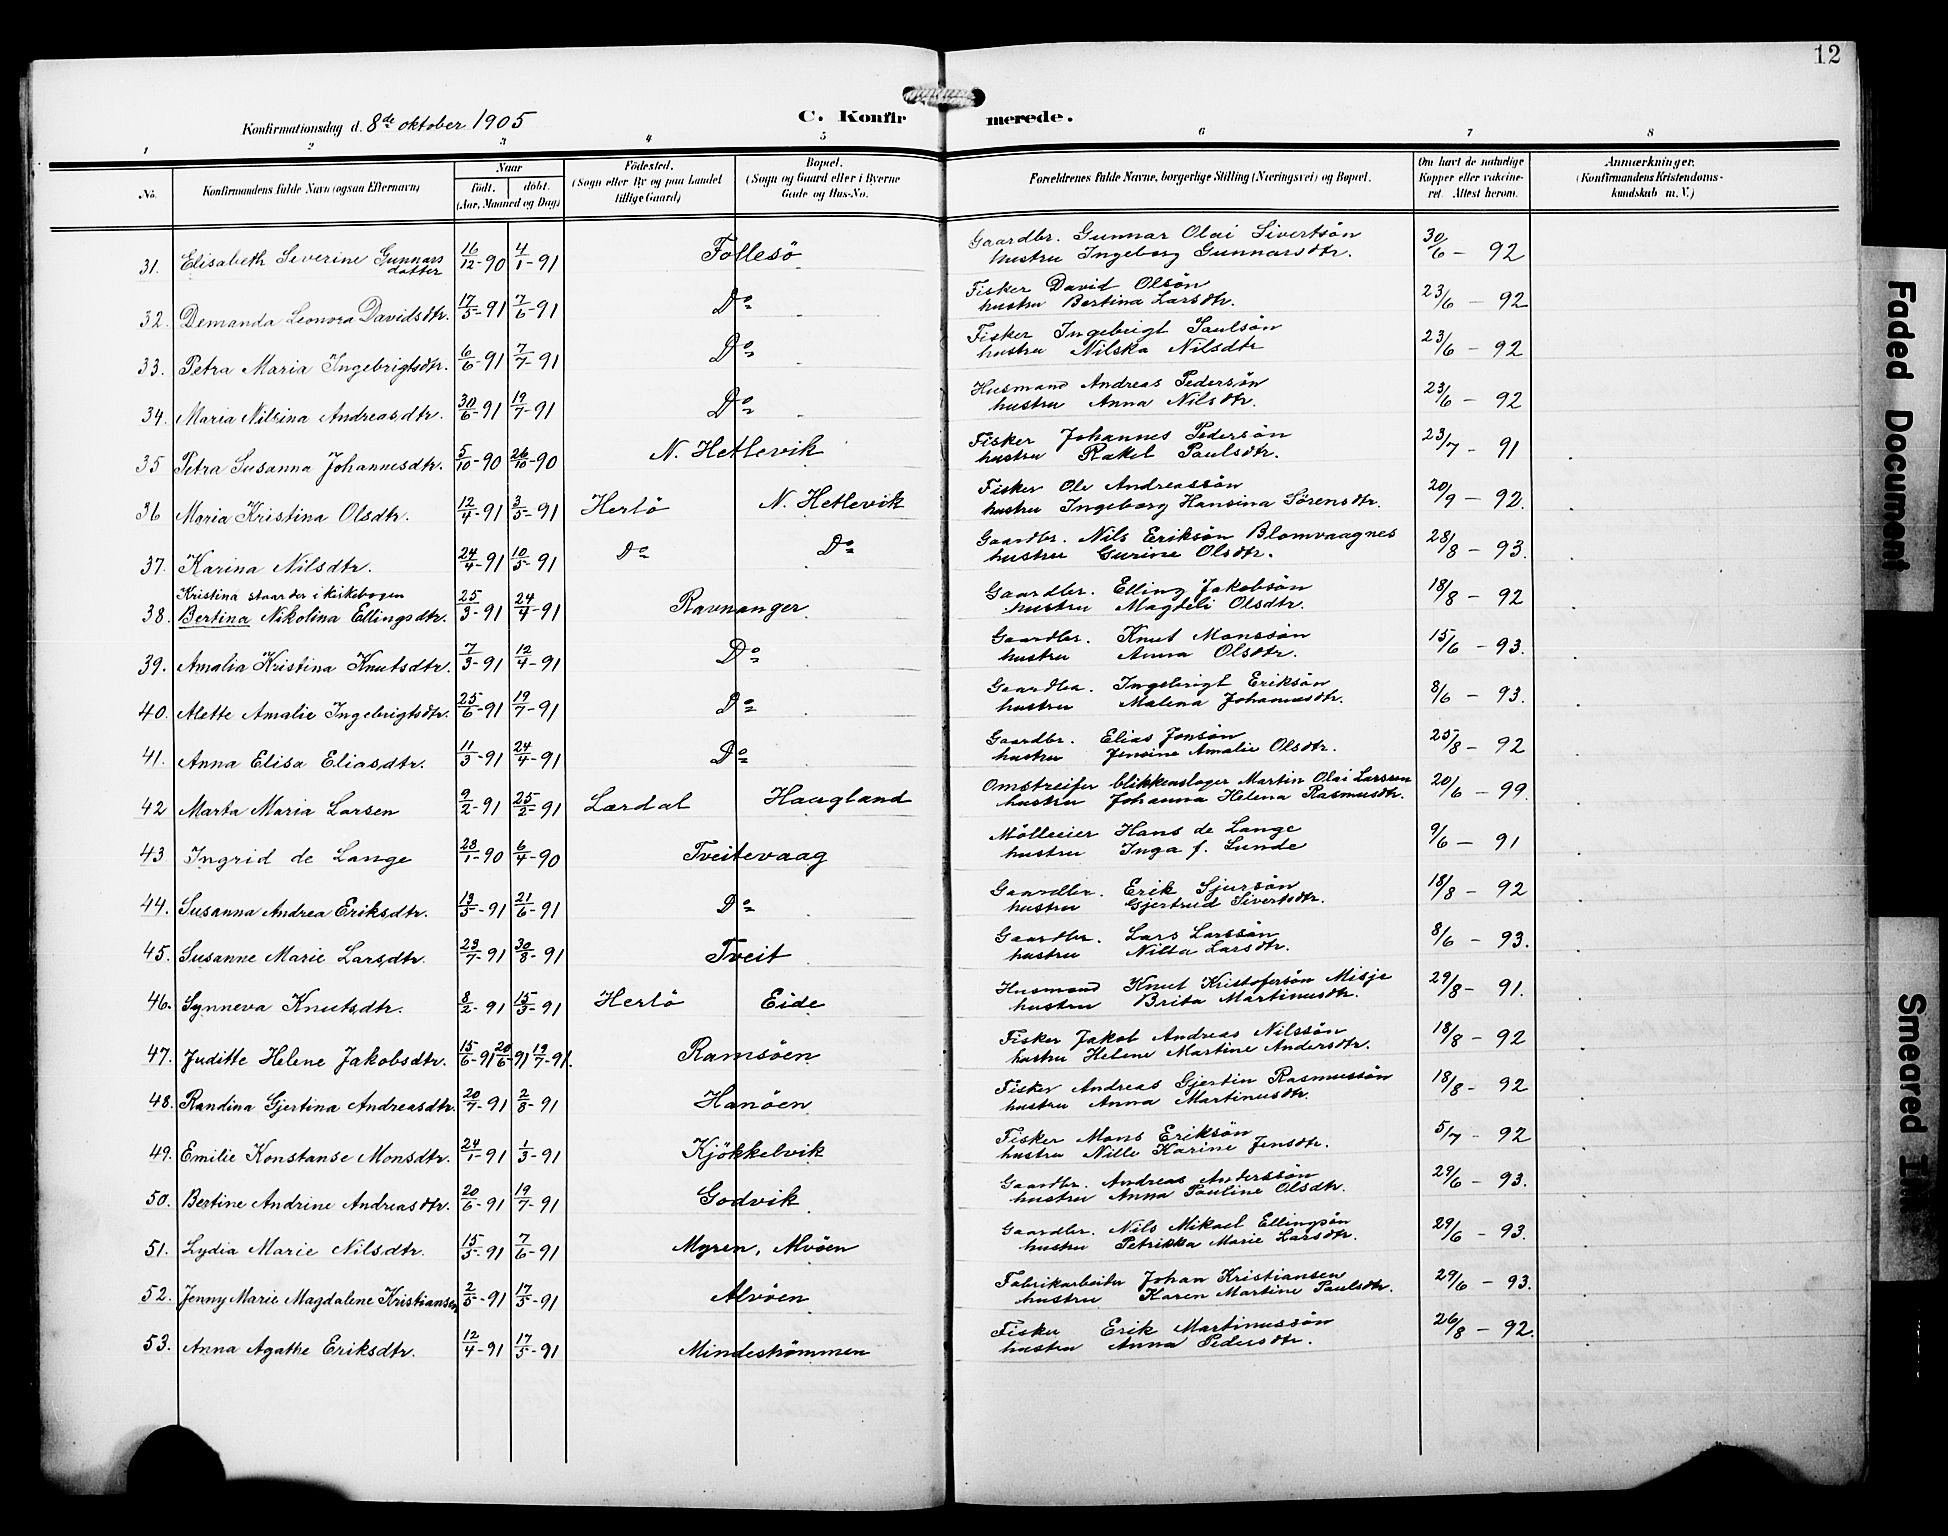 12
Konfirmationsdag d. 8de oktober 1905
C. Konfirmerede.
1 2 3 4 5 6 7 8
No. Konfirmandens fulde Navn (ogsaa Efternavn) Naar født. døbt. (Aar, Maaned og Dag) Fødested. (Sogn eller By og paa Landet tillige Gaard) Bopæl. (Sogn og Gaard eller i Byerne Gade og Hus-No. Forældrenes fulde Navne, borgerlige Stilling (Næringsvei) og Bopæl. Om havt de naturlige Kopper eller vaccineret. Attest herom. Anmærkninger. (Konfirmandens Kristendomskundskab m. V.)
31. Elisabeth Severine Gunnarsdatter 16/12-90 4/1-91 Follesö Gaardbr. Gunnar Olai Sivertsön 30/6 - 92
hustru Ingeborg Gunnarsdtr.
32. Demanda Leonora Davidsdtr. 17/5-91 7/6-91 Do Fisker David Olsön 23/6 - 92
hustru Bertina Larsdtr.
33. Petra Maria Ingebrigtsdtr. 6/6-91 7/7-91 Do Fisker Ingebrigt Paulsön 23/6 - 92
hustru Nilska Nilsdtr
34. Maria Nilsina Andreasdtr. 30/6-91 19/7-91 Do Husmand Andreas Pedersön 23/6 - 92
hustru Anna Nilsdtr.
35 Petra Susanna Johannesdtr. 5/10-90 26/10-90 N. Hetlevik Fisker Johannes Pedersön 23/7 - 91
hustru Rakel Paulsdtr.
36 Maria Kristina Olsdtr. 12/4-91 3/5-91 Herlö N. Hetlevik Fisker Ole Andreassön 20/9 - 92.
hustru Ingeborg Hansina Sörensdtr.
37. Karina Nilsdtr. 24/4-91 10/5-91 Do Do Gaardbr. Nils Eriksön Blomvaagnes 28/8 - 93.
hustru Gurine Olsdtr.
Kristina staar der i kirkebogen
38. Bertina Nikolina Ellingsdtr. 25/3-91 24/4-91 Ravnanger Gaardbr. Elling Jakobsön 18/8 - 92
hustru Magdeli Olsdtr.
39. Amalia Kristina Knutsdtr. 7/3-91 12/4-91 Do Gaardbr. Knut Monssön 15/6 - 93.
hustru Anna Olsdtr.
40. Alette Amalie Ingebrigtsdtr. 25/6-91 19/7-91 Do Gaardbr. Ingebrigt Eriksön 8/6 - 93.
hustru Malena Johannesdtr.
41. Anna Elisa Eliasdtr. 11/3-91 24/4-91 Do Gaardbr. Elias Jonsön 25/8 - 92
hustru Jensine Amalie Olsdtr.
42 Marta Maria Larsen 9/2-91 25/2-91 Lærdal Haagland Omstreifer blikkenslager Martin Olai Larssen 20/6 - 99.
hustru Johanna Helena Rasmusdtr.
43 Ingrid de Lange 23/1-90 6/4-90 Tveitevaag Mölleeier Hans de Lange 9/6 - 91
hustru Inga f. Lunde
44. Susanna Andrea Eriksdtr. 13/5-91 21/6-91 Do Gaardbr. Erik Sjursön 18/8 - 92
hustru Gjertrud Sivertsdtr.
45. Susanne Marie Larsdtr. 23/7-91 30/8-91 Tveit Gaardbr. Lars Larssön 8/6 - 93.
hustru Nilta Larsdtr.
46. Synneva Knutsdtr. 8/2-91 15/3-91 Herlö Eide Husmand Knut Kristofersön Misje 29/8- 91.
hustru Brita Martinusdtr.
47. Juditte Helene Jakobsdtr. 15/6-91 20/6-91 19/7-91. Ramsöen Fisker Jakob Andreas Nilssön 18/8 - 92
hustru Helene Martine Andersdtr.
48. Randina Gjertina Andreasdtr. 20/7-91 2/8-91 Hanöen Fisker Andreas Gjertin Rasmussön 18/8 - 92
hustru Anna Martinusdtr.
49. Emilie Konstanse Monsdtr. 24/1-91 1/3-91 Kjökkelvik Fisker Mons Eriksön 5/7 - 92
hustru Nille Karine Jensdtr.
50. Bertine Andrine Andreasdtr. 20/6-91 19/7-91 Godvik Gaardbr. Andreas Anderssön 29/6 - 93.
hustru Anna Pauline Olsdtr.
51. Lydia Marie Nilsdtr. 15/5-91 7/6-91 Myren, Alvöen Gaardbr. Nils Mikael Ellingsön 29/6 - 93.
hustru Petrikka Marie Larsdtr.
52. Jenny Marie Magdalene Kristiansen 2/5-91 17/5-91 Alvöen Fabrikarbeider Johan Kristiansen 29/6 - 93.
hustru Karen Martine Paulsdtr.
53. Anna Agathe Eriksdtr. 12/4-91 17/5-91 Mindeströmmen Fisker Erik Martinussön 26/8 - 92.
hustru Anna Pedersdtr.
Faded Document
Smeared Ink